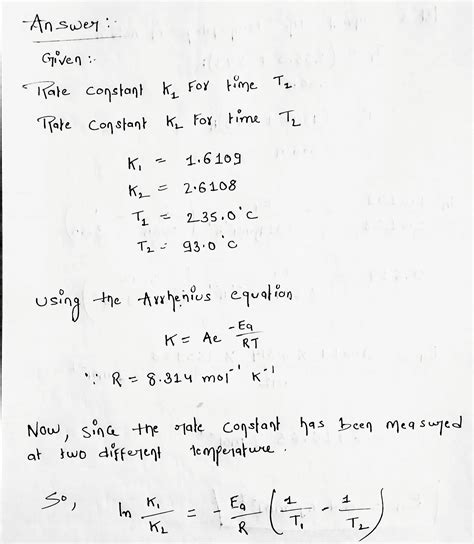 Answer :-
Given :-
Rate constant K1 for time T1
Rate constant K2 for time T2
K1 = 1.6109
K2 = 2.6108
T1 = 235.0°C
T2 = 93.0°C
using the Arrhenius equation
K = Ae -Ea/RT
∵ R = 8.314 mol⁻¹ K⁻¹
Now, since the rate constant has been measured
at two different temperature.
So, ln K1/K2 = - Ea/R (1/T1 - 1/T2)